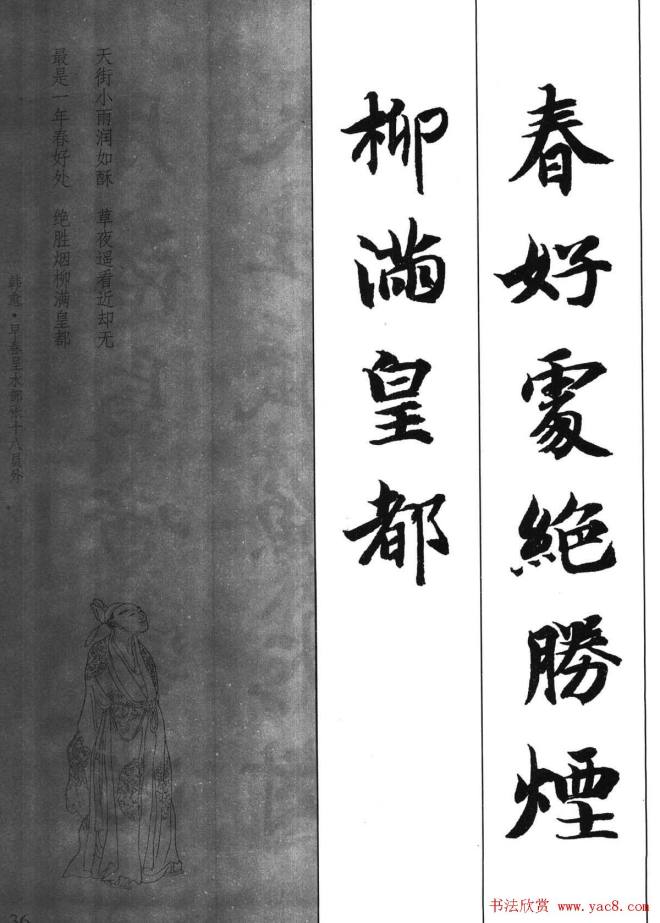 春好處絶勝煙
柳滿皇都
天街小雨润如酥 草夜遥看近却无
最是一年春好处 绝胜烟柳满皇都
韩愈·早春呈水部张十八员外
36
书法欣赏 www.yac8.com